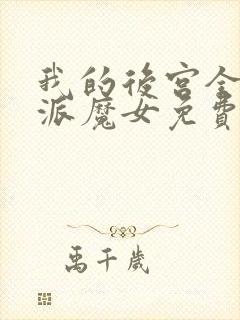 我的後宮全
派魔女免費
禹千歲